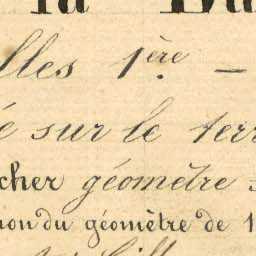 lles 1ère –
é sur le terr
cher géomètre
ion du géomètre de 1